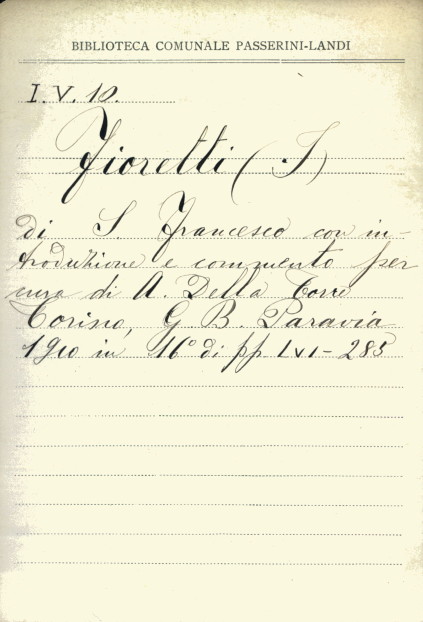 BIBLIOTECA COMUNALE PASSERINI-LANDI
I. V. 10.
Fioretti (I)
di S. Francesco con in-
troduzione e commento per
cura di A. Della Torre
Torino, G. B. Paravia
1910 in 16° di pp. LVI-285